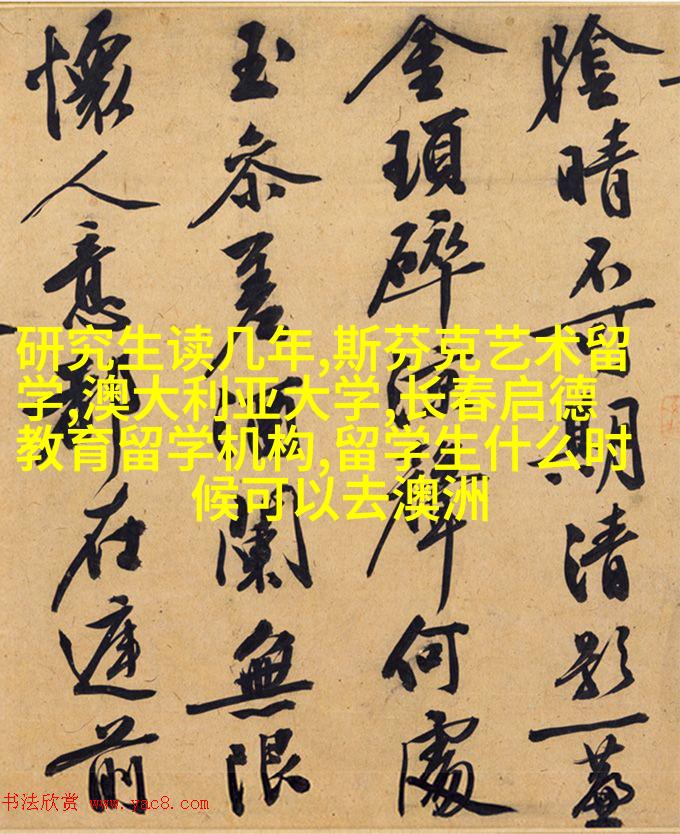 陰晴不可期清影一
金瑣碎聲何處
玉參差酒闌無限
懷人意都在庭前
研究生读几年,斯芬克艺术留
学,澳大利亚大学,长春启德
教育留学机构,留学生什么时
候可以去澳洲
书法欣赏 www.yac8.com